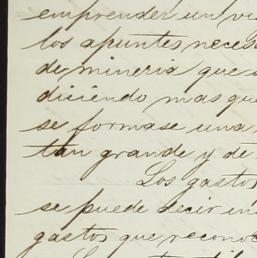 emprender un vi
los apuntes neces
de mineria que
diciendo mas que
se formase una
tan grande y de
Los gastos
se puede decir in
gastos que recono